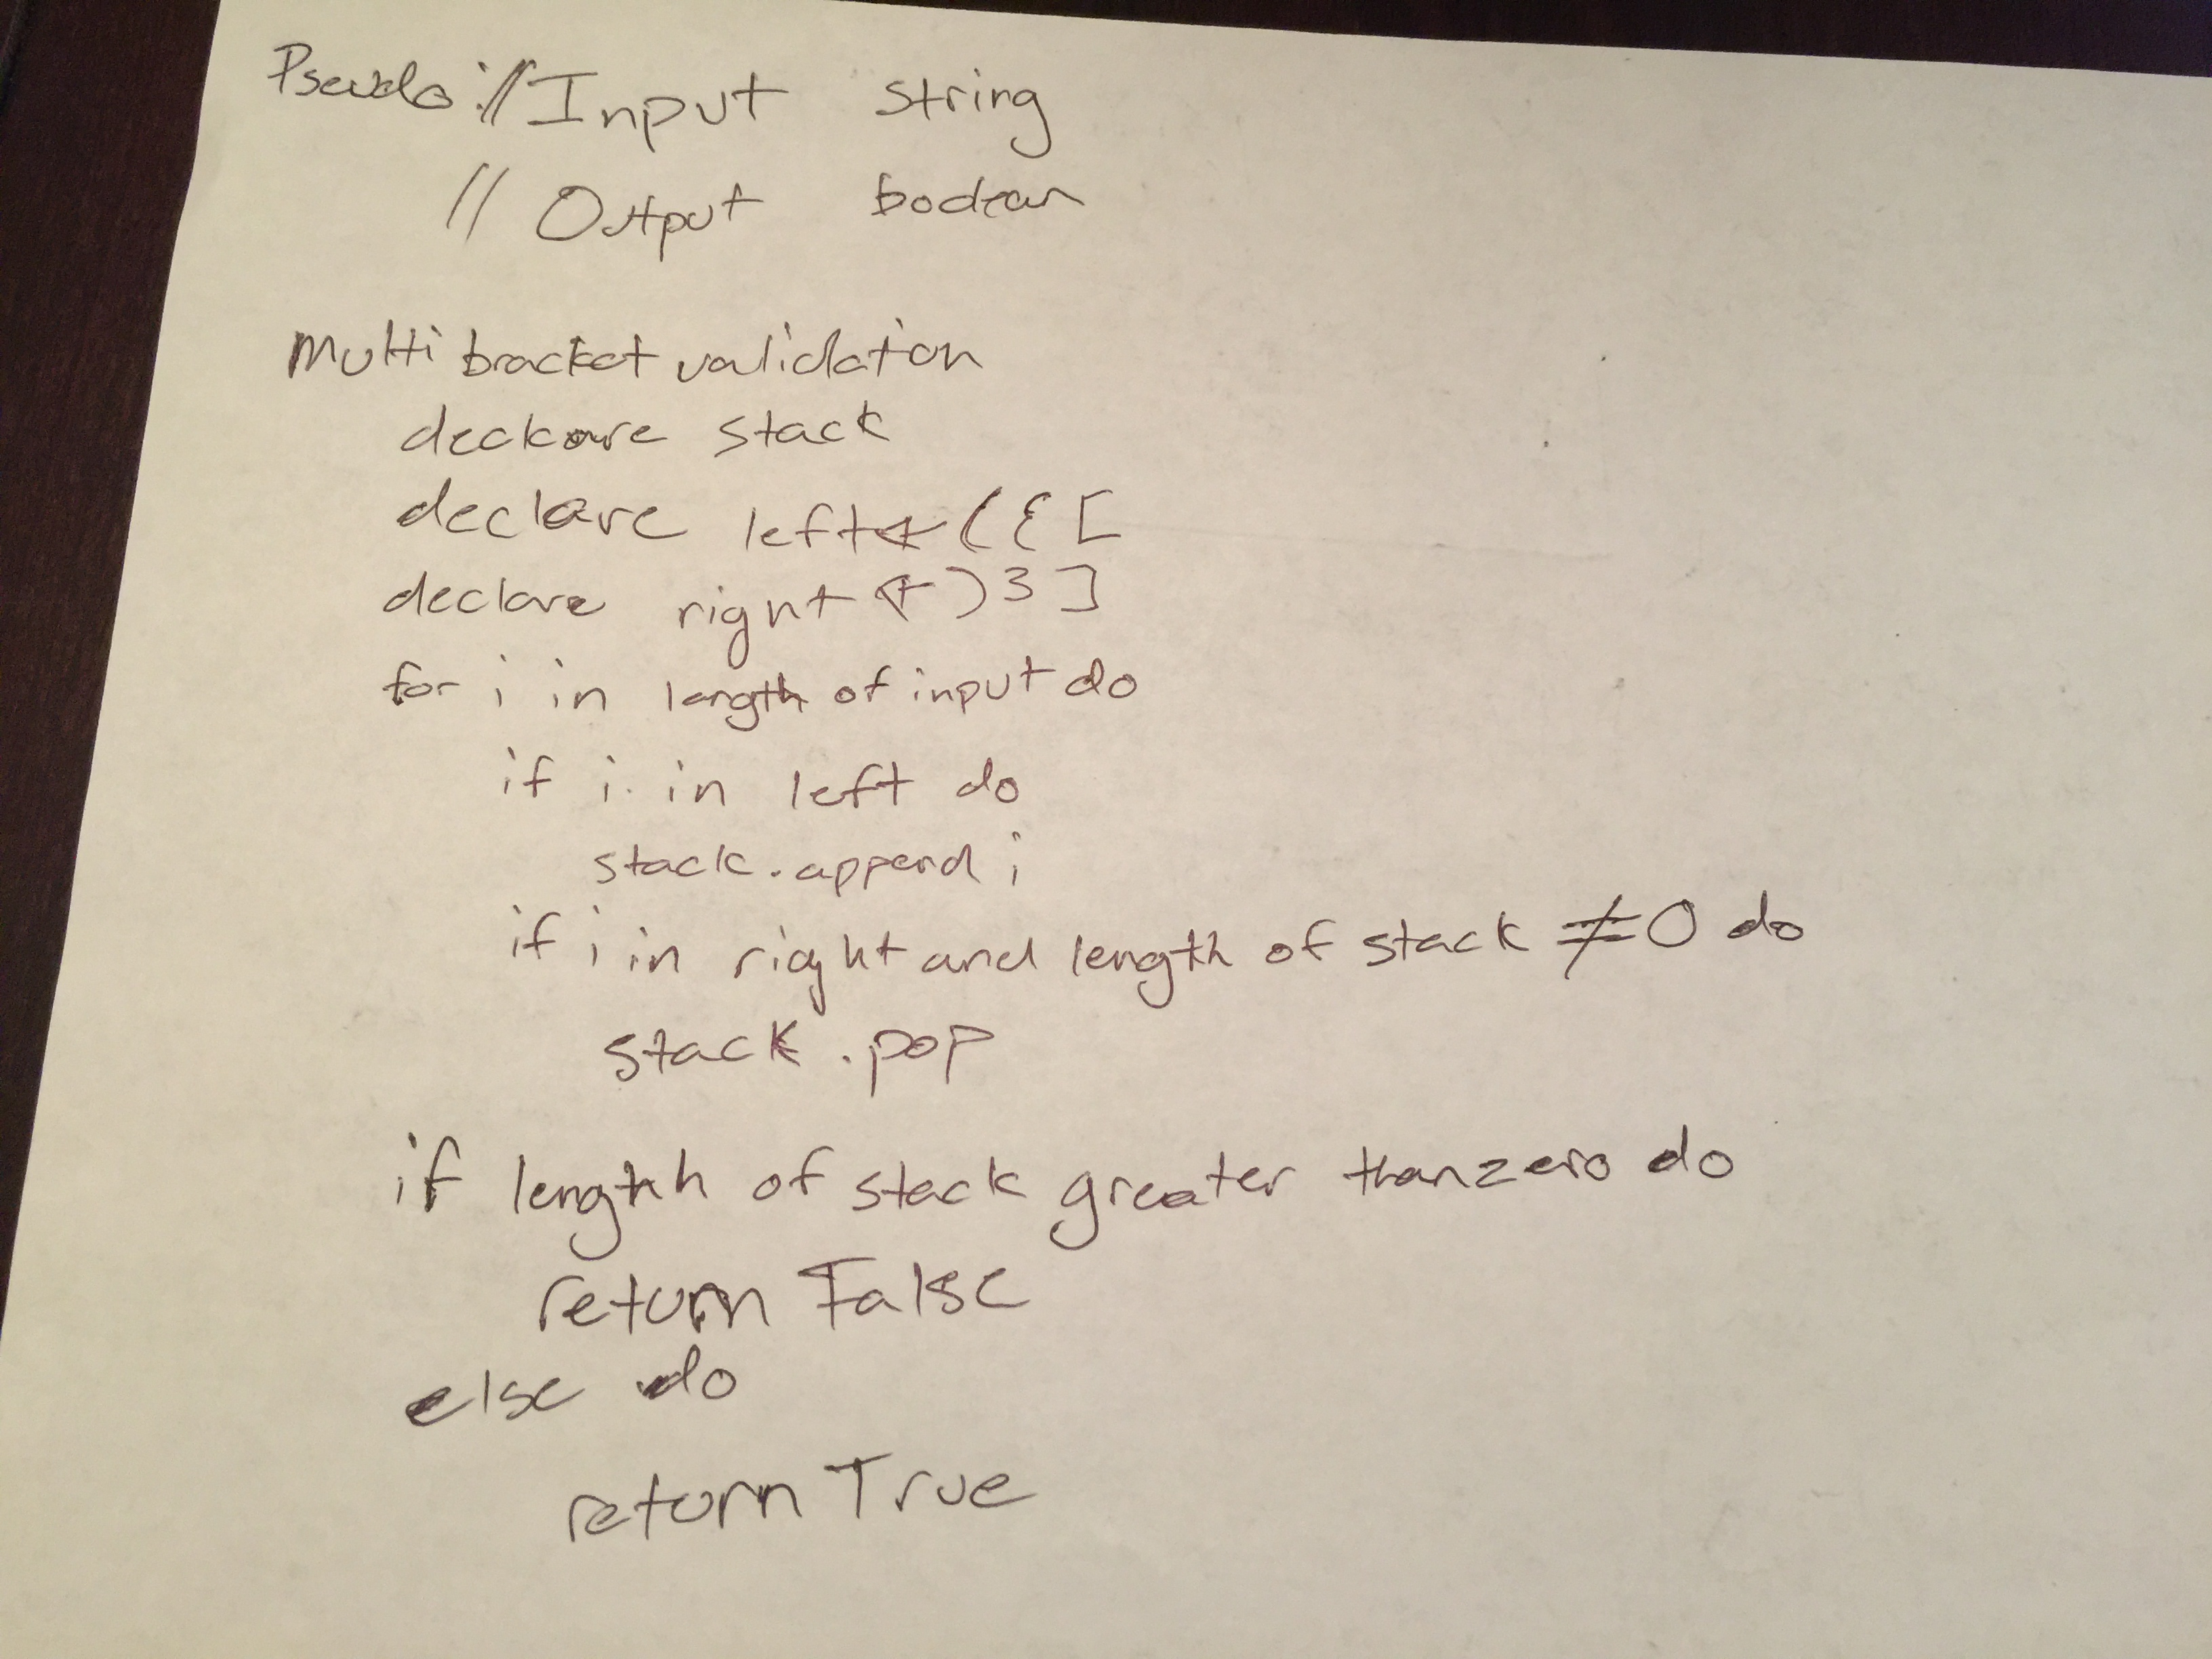 Pseudo: // Input string
// Output boolean
Multi bracket validation
declare stack
declare left ← ( { [
declare right ← ) } ]
for i in length of input do
if i in left do
stack.append i
if i in right and length of stack ≠ 0 do
stack.pop
if length of stack greater than zero do
return False
else do
return True